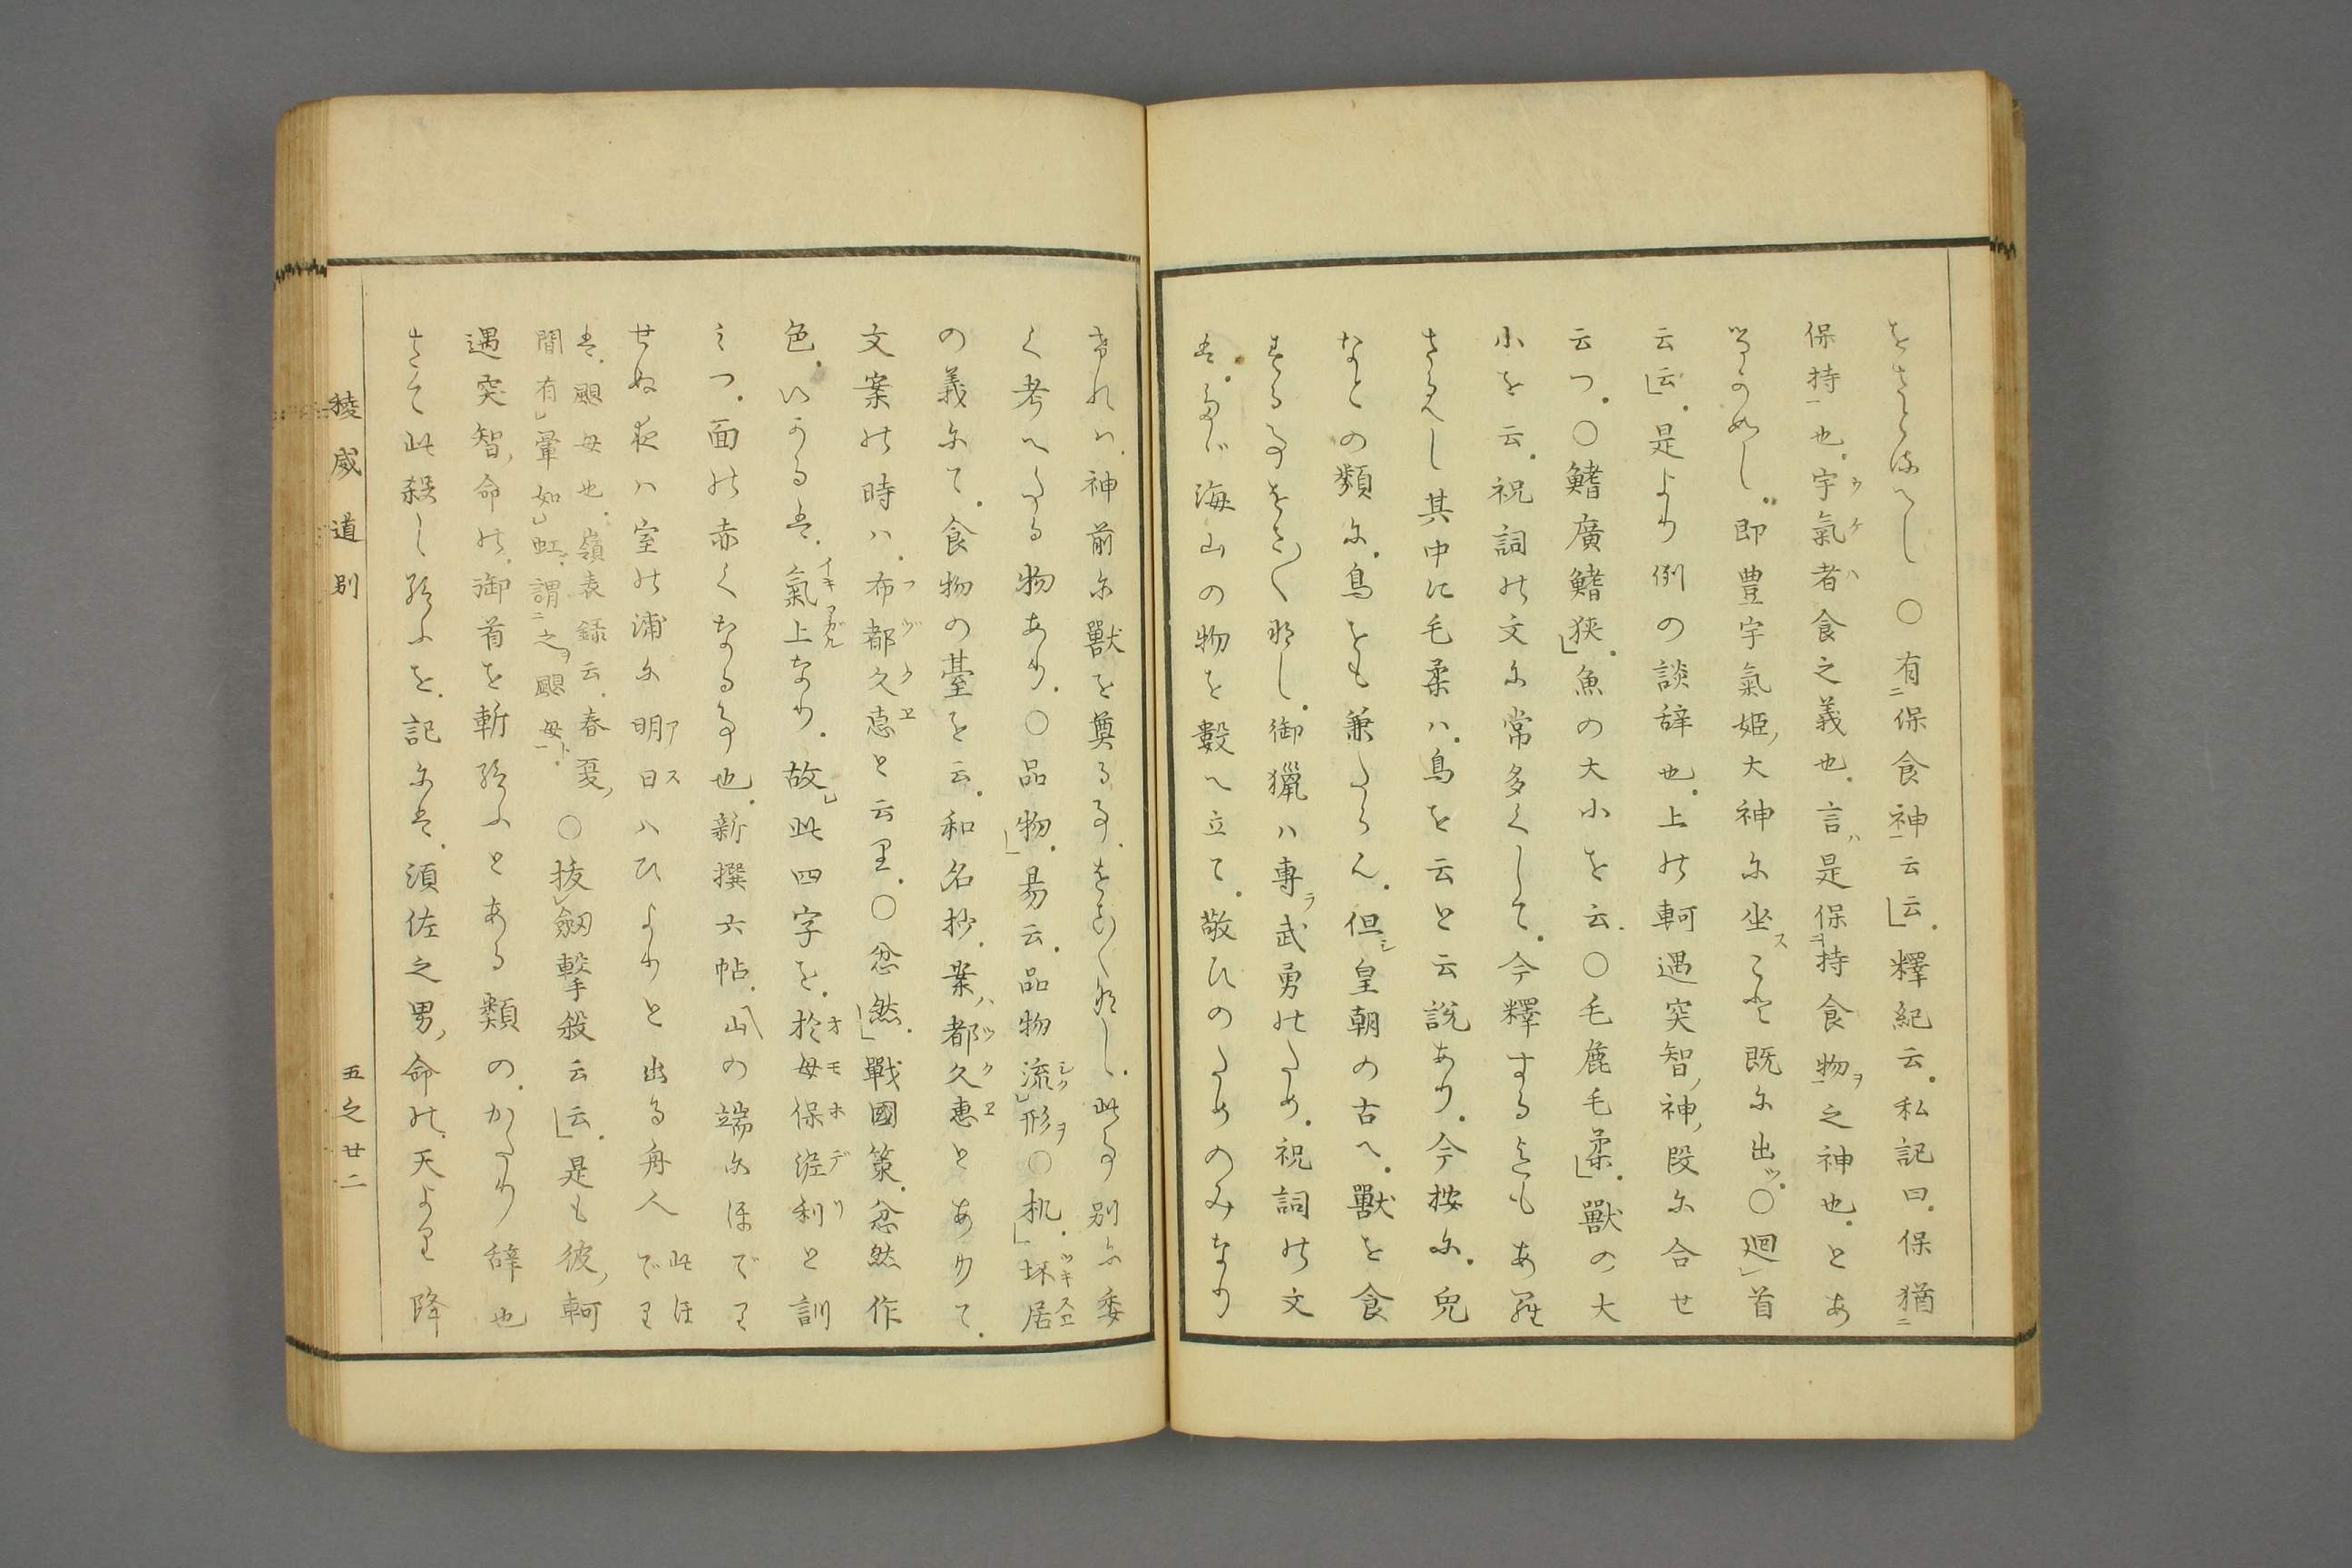 をさとほへし 〇有保食神云云釋紀云私記曰保猶
保持也宇氣者食之義也言是保持食物之神也とあ
るかめし即豊宇氣姫大神尓坐スこと既尓出ッ〇廻首
云云是より例の談辞也上能軻遇突智神段尓合せ
云つ〇鰭廣鰭狭魚の大小を云〇毛麁毛柔獸の大
小を云祝詞能文尓常多くして今釋するよしもあ羅
さるへし其中に毛柔ハ鳥を云と云說あり今按尓兎
なとの類尓鳥をも兼たらん但シ皇朝の古へ獸を食
御獵ハ專ラ武勇能ため祝詞能文
海山の物を數へ立て敬ひのためのみなり
きれハ神前尓獸を奠る事此事別尓委
く考へたる物あり〇品物易云品物流形〇机坏居
の義尓て食物の臺を云和名抄案ハ都久惠とありて
文案能時ハ布都久惠と云里〇忿然戰國策忿然作
色いかる者氣上なり故此四字を於母保氐利と訓
みつ面能赤くなる事也新撰六帖山の端尓ほでり
せぬ夜ハ室能浦尓明日ハひよりと出る舟人此ほでり
者颶母也嶺表録云春夏
間有暈如虹謂之颶母 〇抜劔擊殺云云是も彼軻
遇突智命能御首を斬給ふとある類のかたり辞也
さて此殺し給ふを記尓者須佐之男命能天より降
稜威道別
五之廿二